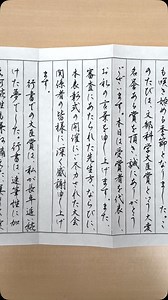 も咲き始める季節となり
のたびは、文部科学大臣賞という大変
名誉ある賞を頂き、誠にありがとう
ございます。本日は受賞者を代表し
お礼の言葉を申し上げます。
審査にあたられた先生方、ならびに、
本表彰式の開催にご尽力された大会
関係者の皆様に深く感謝申し上げ
ます。
行書での大臣賞は、私が長年追い
け、夢でした。行書は速筆性に加